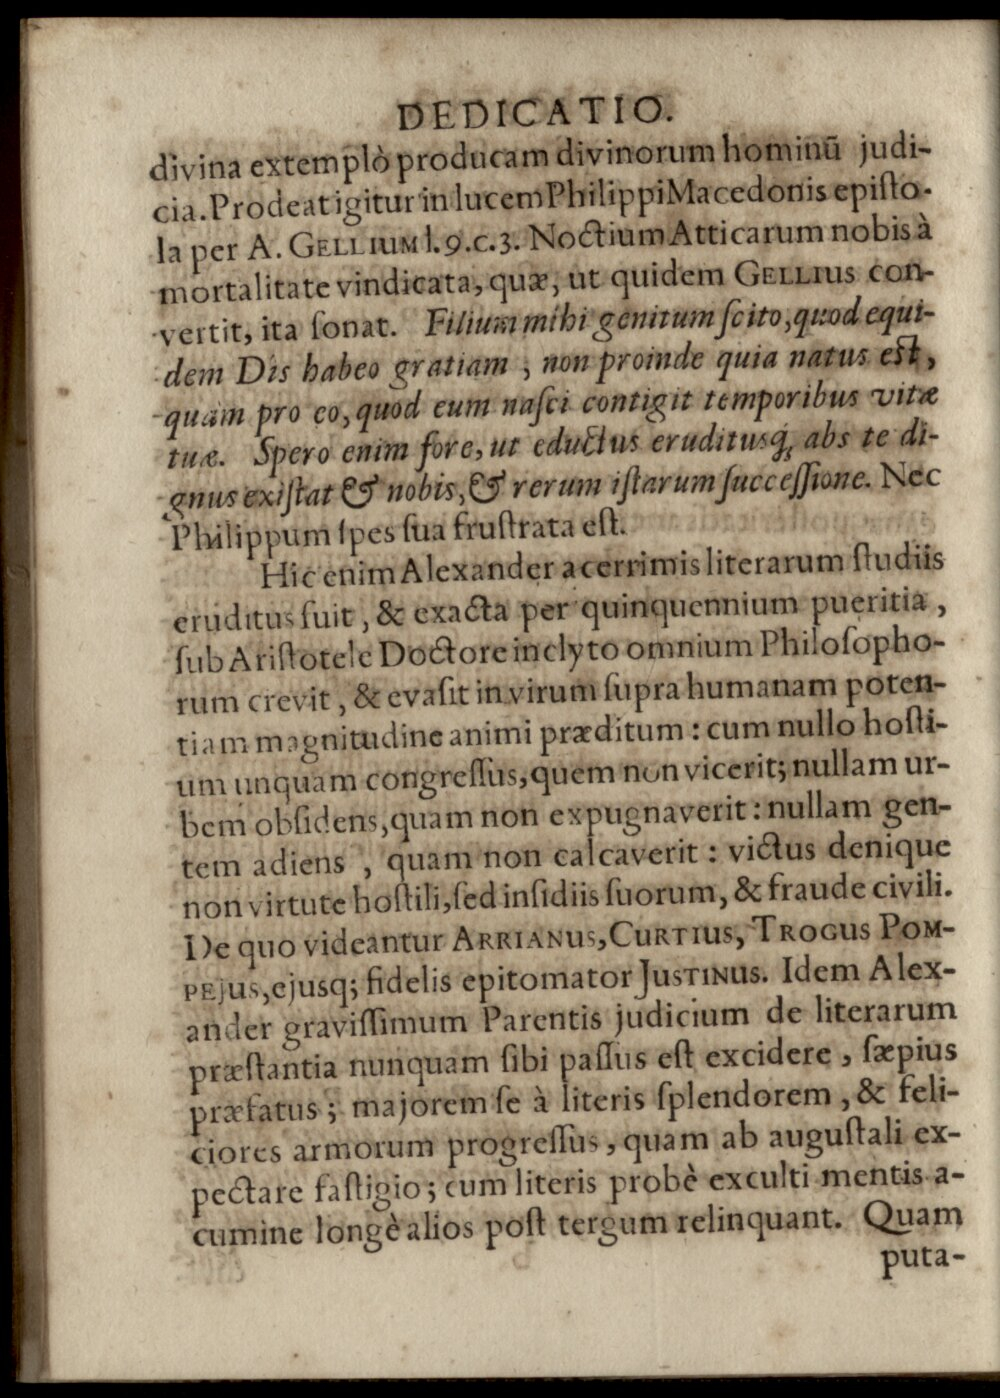 DEDICATIO.
divina extemplò producam divinorum hominū judi-
cia. Prodeat igitur in lucem Philippi Macedonis episto-
la per A. GELLIUM l. 9. c. 3. Noctium Atticarum nobis à
mortalitate vindicata, quæ, ut quidem GELLIUS con-
vertit, ita sonat. Filium mihi genitum scito, quod equi-
dem Dis habeo gratiam, non proinde quia natus est,
quàm pro eo, quod eum nasci contigit temporibus vitæ
tuæ. Spero enim fore, ut eductus eruditusq́; abs te di-
gnus existat & nobis, & rerum istarum successione. Nec
Philippum spes sua frustrata est.
Hic enim Alexander acerrimis literarum studiis
eruditus fuit, & exacta per quinquennium pueritia,
sub Aristotele Doctore inclyto omnium Philosopho-
rum crevit, & evasit in virum supra humanam poten-
tiam magnitudine animi præditum: cum nullo hosti-
um unquam congressus, quem non vicerit; nullam ur-
bem obsidens, quam non expugnaverit: nullam gen-
tem adiens, quam non calcaverit: victus denique
non virtute hostili, sed insidiis suorum, & fraude civili.
De quo videantur ARRIANUS, CURTIUS, TROGUS POM-
PEJUS, ejusq; fidelis epitomator JUSTINUS. Idem Alex-
ander gravissimum Parentis judicium de literarum
præstantia nunquam sibi passus est excidere, sæpius
præfatus; majorem se à literis splendorem, & feli-
ciores armorum progressus, quam ab augustali ex-
pectare fastigio; cum literis probè exculti mentis a-
cumine longè alios post tergum relinquant. Quam
puta-